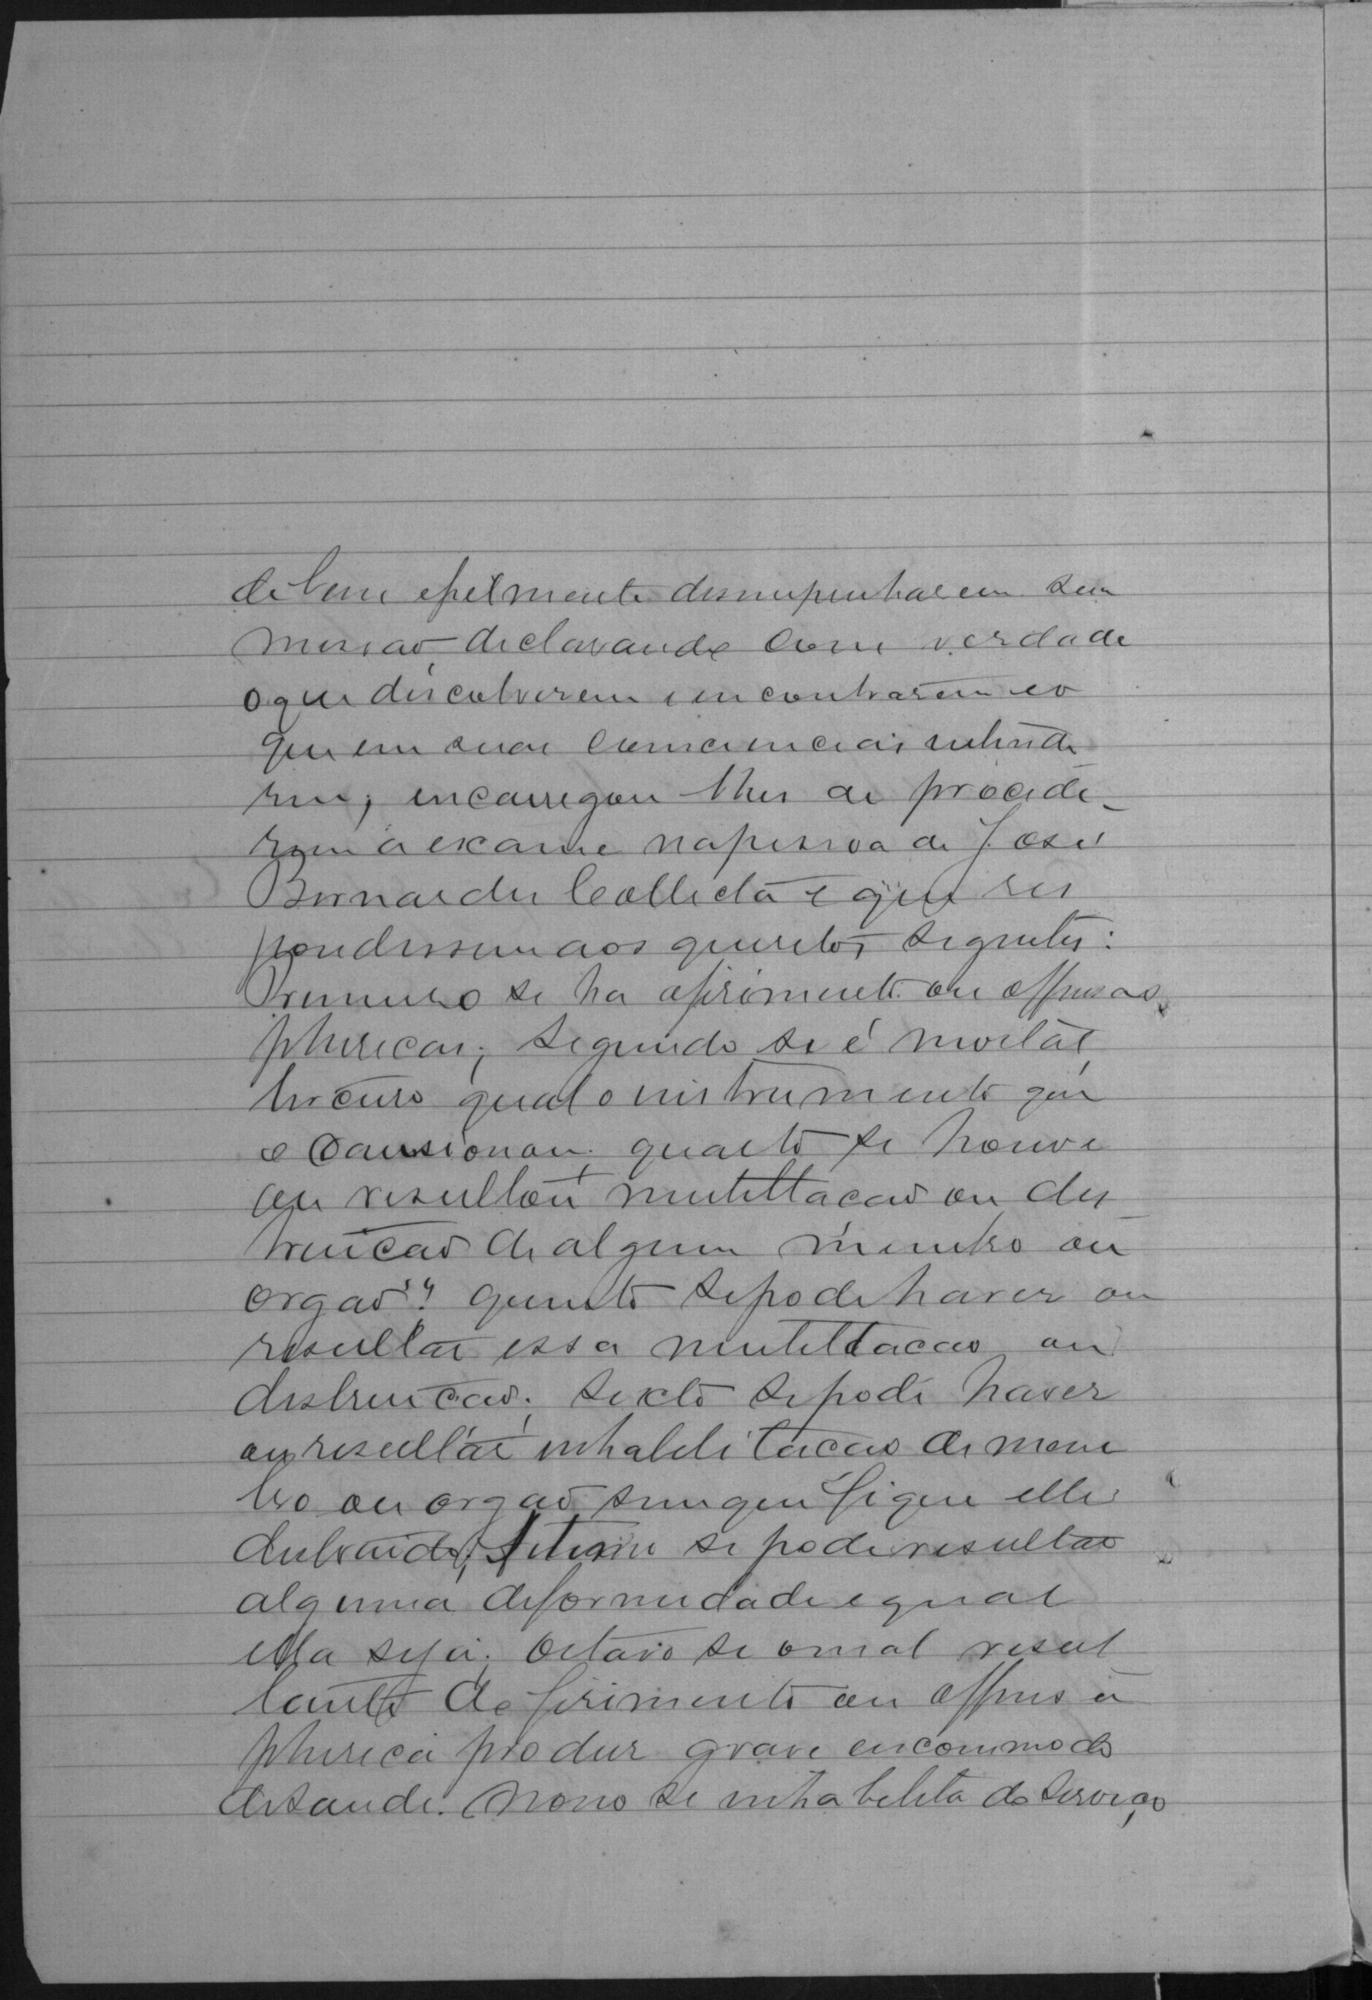 de bem e fielmente desempenharem sua
missão, declarando com verdade
o que discobrirem e encontrarem e o
que em suas consciencias entende
rem, encarregou lhes de procede-
rem a exame na pessoa de José
Bernardes Colleta e que res
pondessem aos quesitos seguintes:
Primeiro se ha ofirimento ou offensas
phisicas; segundo se é mortal,
terceiro qual o instrumento que
o occasionou; quarto se houve
ou resultou mutillacao ou des
truicao de algum membro ou
orgao; quinto se pode haver ou
resultar essa mutillacao ou
destruicao; sexto se pode haver
ou resultar inhabilitacao de mem
bro ou orgao sem que fique elle
destruido; setimo se pode resultar
alguma deformidade e qual
ella seja; octavo se o mal resul
tante do firimento ou offensa
phisica produz grave encommodo
de saude. Nono se inhabelita do serviço